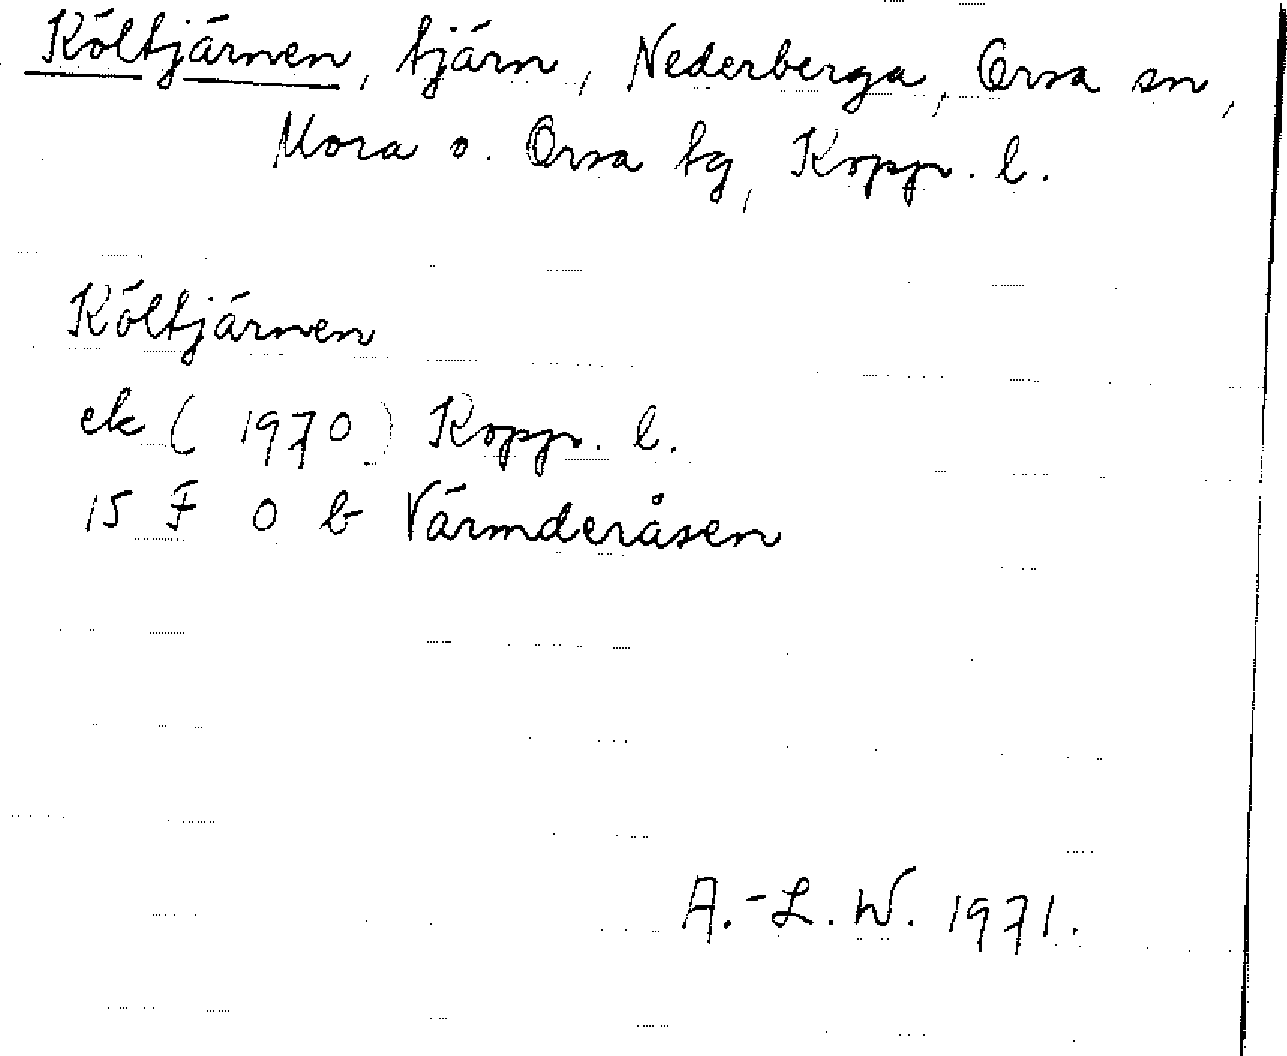 Költjärnen, tjärn, Nederberga, Orsa sn,
Mora o. Orsa tg, Kopp. l.
Költjärnen
ek (1970) Kopp. l.
15 F 0 b Värmderåsen
A.-L. W. 1971.